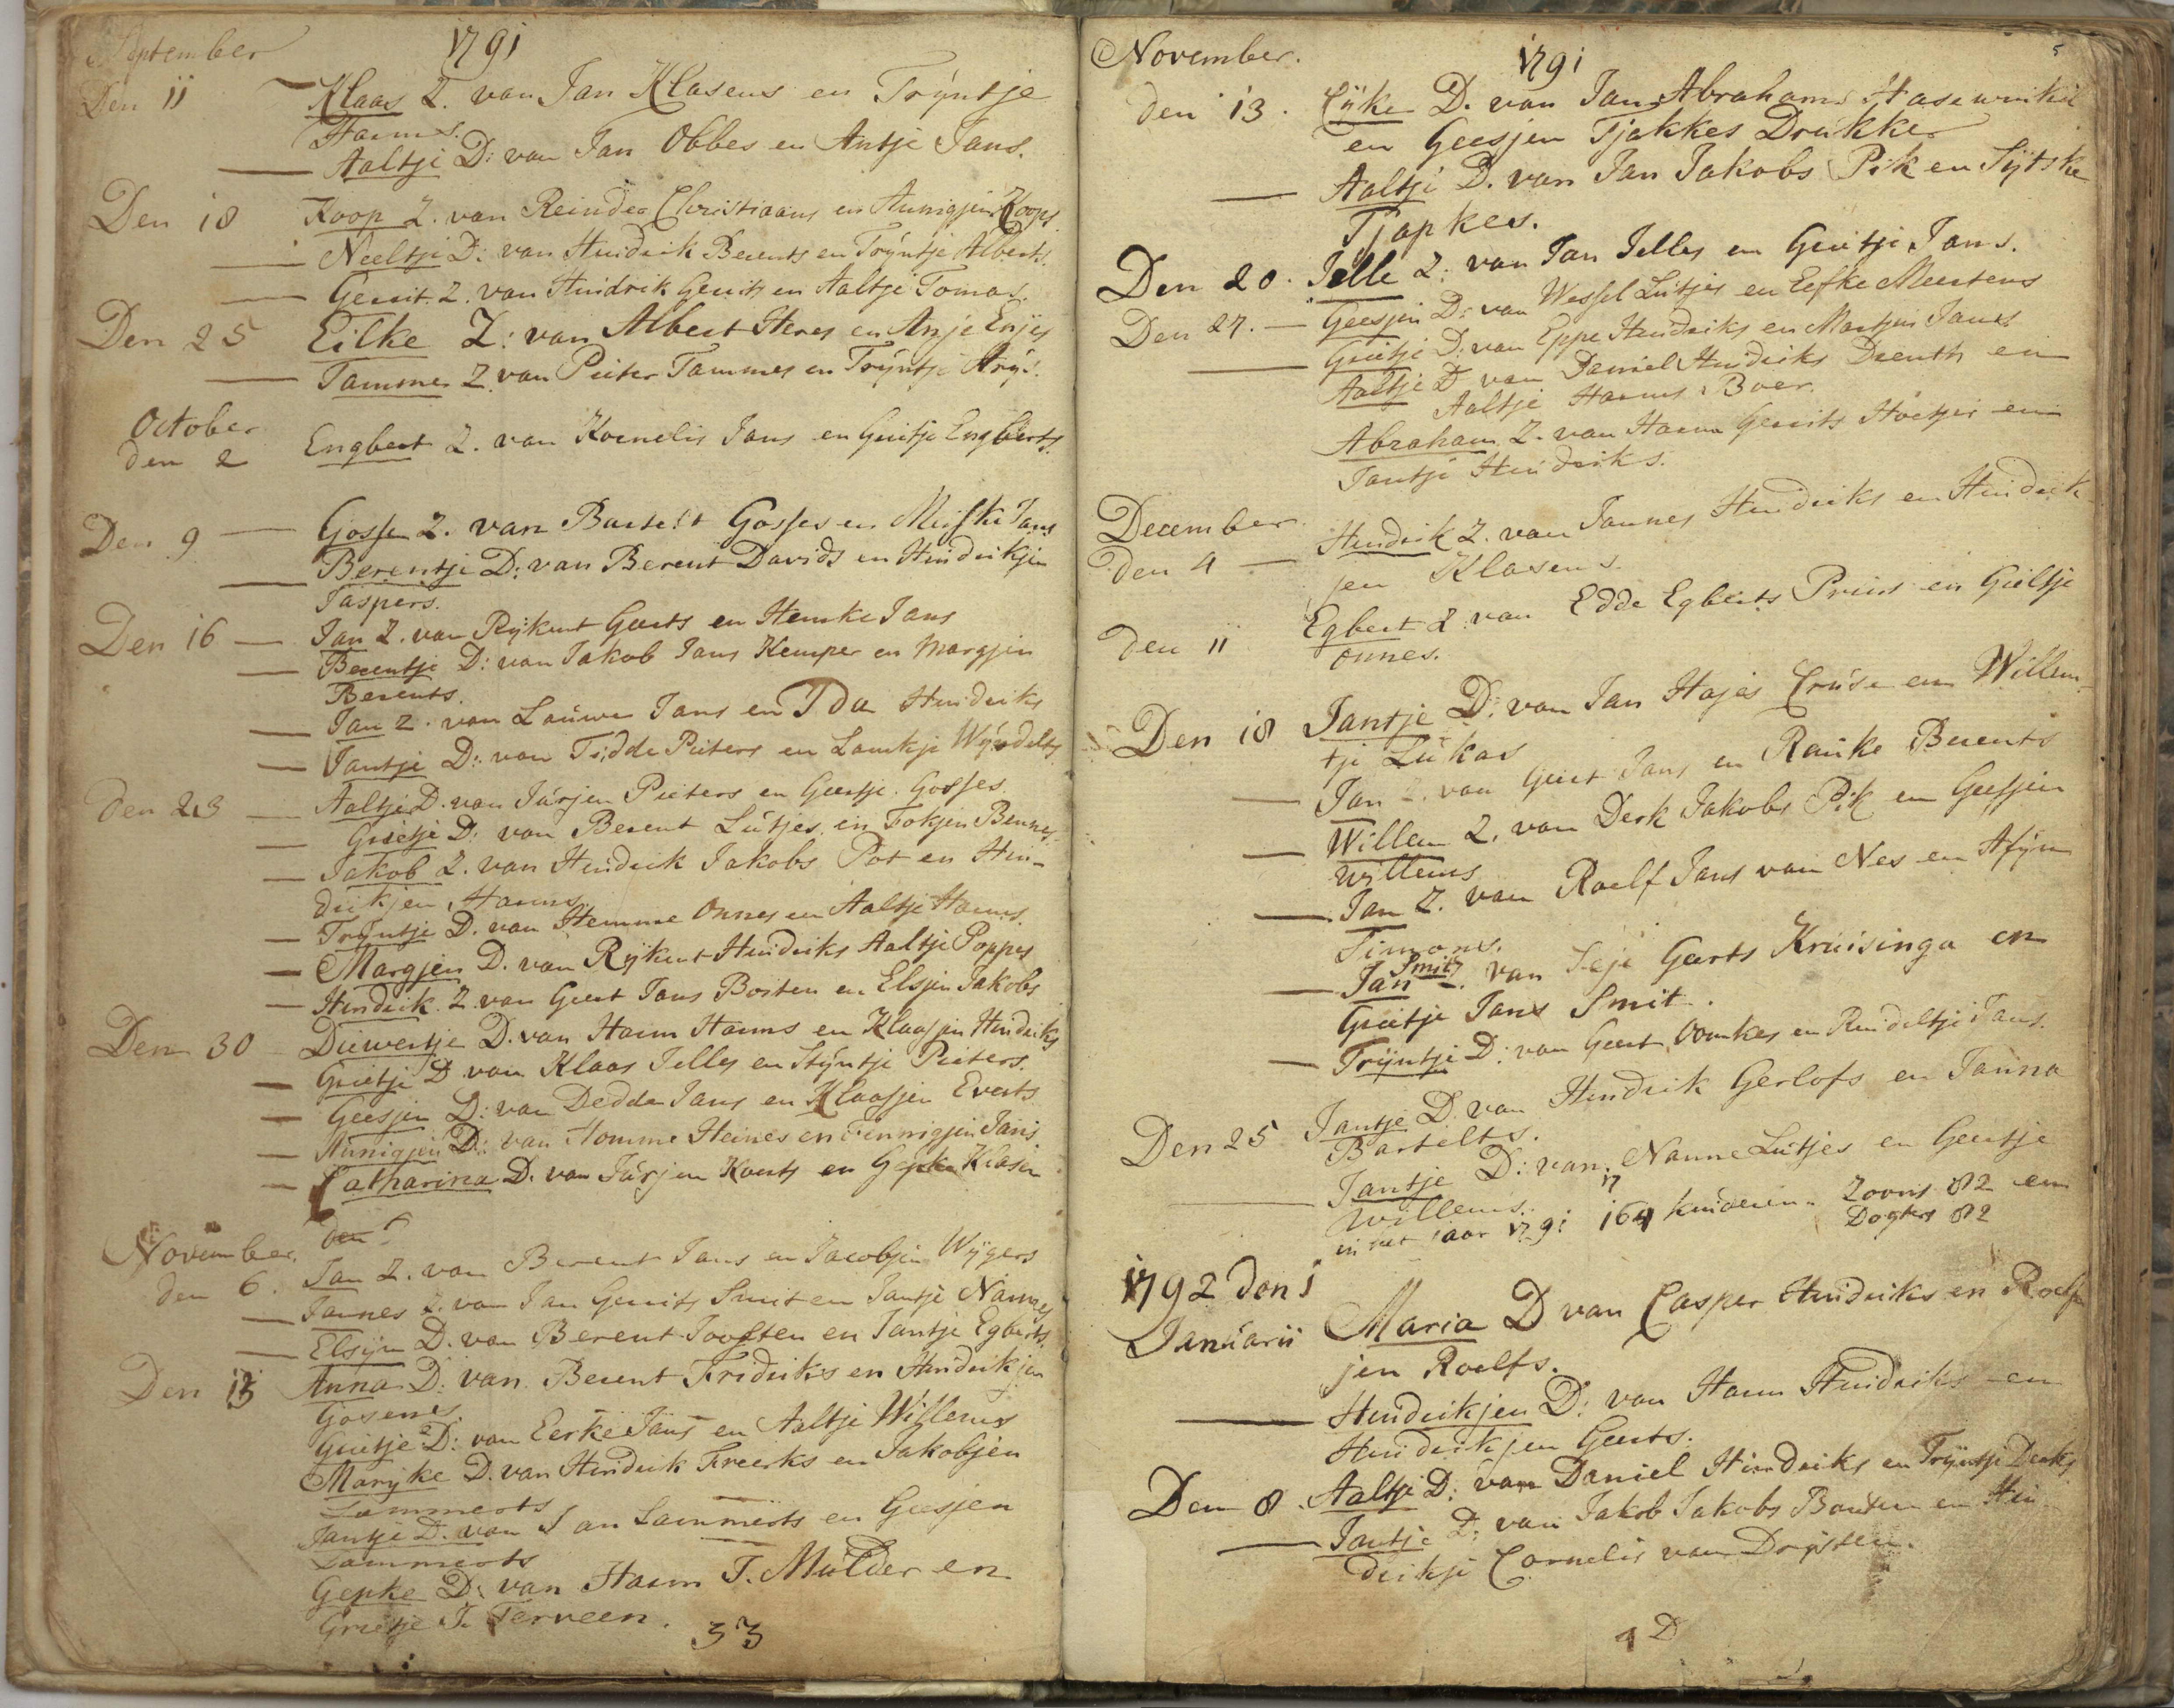 September 1791
Den 11 Klaas Z. van Jan Klasens en Trÿntje
Harms.
Aaltje D: van Jan Obbes en Antje Jans.
Den 18 Koop Z. van Reinder Christiaans en Annigjen Koops.
Neeltje D: van Hindrik Berents en Trÿntje Alberts.
Gerrit Z. van Hindrik Gerrits en Aaltje Tomas.
Den 25 Eilke Z: van Albert Heres en Anje Enjes
Tammes Z van Pieter Tammes en Trÿntje Arÿs.
October
den 2 Engbert Z. van Kornelis Jans en Grietje Engberts.
Den 9 Gosse Z. van Bartelt Gosses en Jans
Berentje D: van Berent Davids en Hindrikjen
Jaspers.
Den 16 Jan Z. van Rÿkent Geerts en Hemke Jans
Berentje D: van Jakob Jans Kemper en Margjen
Berents.
Jan Z. van Lauwe Jans en Ida Hindriks
Jantje D: van Tidde Pieters en Lamkje Wÿndelts
den 23 Aaltje D. van Jurjen Pieters en Geertje Gosses.
Grietje D: van Berent Lutjes en Fokjen Bennes
Jakob Z. van Hindrik Jakobs Pot en Hin-
drikjen Harms
Trÿntje D. van Hemme Onnes en Aaltje Harms.
Margjen D. van Rÿkent Hindriks Aaltje Poppes
Hindrik Z. van Geert Jans Bosten en Elsjen Jakobs
Den 30 Diewertje D. van Harm Harms en Klaasjen Hindriks
Grietje D van Klaas Jelles en Stÿntje Pieters.
Geesjen D: van Dedde Jans en Klaasjen Everts
Annigjen D: van Homme Heines en Fennigjen Jans.
Catharina D. van Jurjen Koerts en Gepke Klasen
den
November
den 6. Jan Z. van Berent Jans en Jacobjen Wÿgers
Jannes Z. van Jan Gerrits Smit en Jantje Nannes
Elsÿn D. van Berent Joosten en Jantje Egberts.
Den 13 Anna D: van Berent Fridriks en Hindrikjen
Gosenes.
Grietje D: van Eerke Jans en Aaltje Willems
Marÿke D. van Hindrik Freerks en Jakobjen
Lammerts
Jantje D. van Jan Lammerts en Geesjen
Lammerts
Gepke D: van Harm T. Mulder en
Grietje J. Terveen. 33
November. 1791 5
den 13. Eÿke D. van Jan Abrahams Hasewinkel
en Geesjen Tjakkes Drukker
Aaltje D. van Jan Jakobs Pik en Sÿtske
Tjapkes.
Den 20. Jelle Z: van Jan Jelles en Grietje Jans.
Den 27. Geesjen D: van Wessel Lutjes en Eefke Meertens
Grietje D: van Eppe Hindriks en Martjen Jans
Aaltje D van Daniel Hindriks Drenth en
Aaltje Harms Boer.
Abraham Z. van Harm Gerrits Hoetjer en
Jantje Hindriks.
December
den 4 Hindrik Z. van Jannes Hindriks en Hindrik-
jen Klasens.
den 11 Egbert Z van Edde Egberts Prins en Gieltje
Onnes.
Den 18 Jantje D: van Jan Hajes Cruse en Willem-
tje Lukas
Jan Z. van Geert Jans en Rauke Berents
Willem Z. van Derk Jakobs Pik en Geesjen
Willems
Jan Z. van Roelf Jans van Nes en
Simons.
Smit
Jan Z. van Geerts Kruisinga en
Grietje Jans Smit.
Trÿntje D: van Geert Oomkes en Rendeltje Jans.
Den 25 Jantje D. van Hindrik Gerlofs en Janna
Bartelts.
Jantje D: van Nanne Lutjes en Geertje
Willems.
in het jaar 1791 164 kinderen. Zoons 82 en
Dogters 82
1792 den 1
Januarii Maria D van Casper Hindriks en Roelf
jen Roelfs.
Hindrikjen D: van Harm Hindriks en
Hindrikjen Geerts.
Den 8. Aaltje D: van Daniel Hindriks en Trÿntje Derks
Jantje D: van Jakob Jakobs Bouten en Hin-
drikje Cornelis van Drÿsten.
4 D